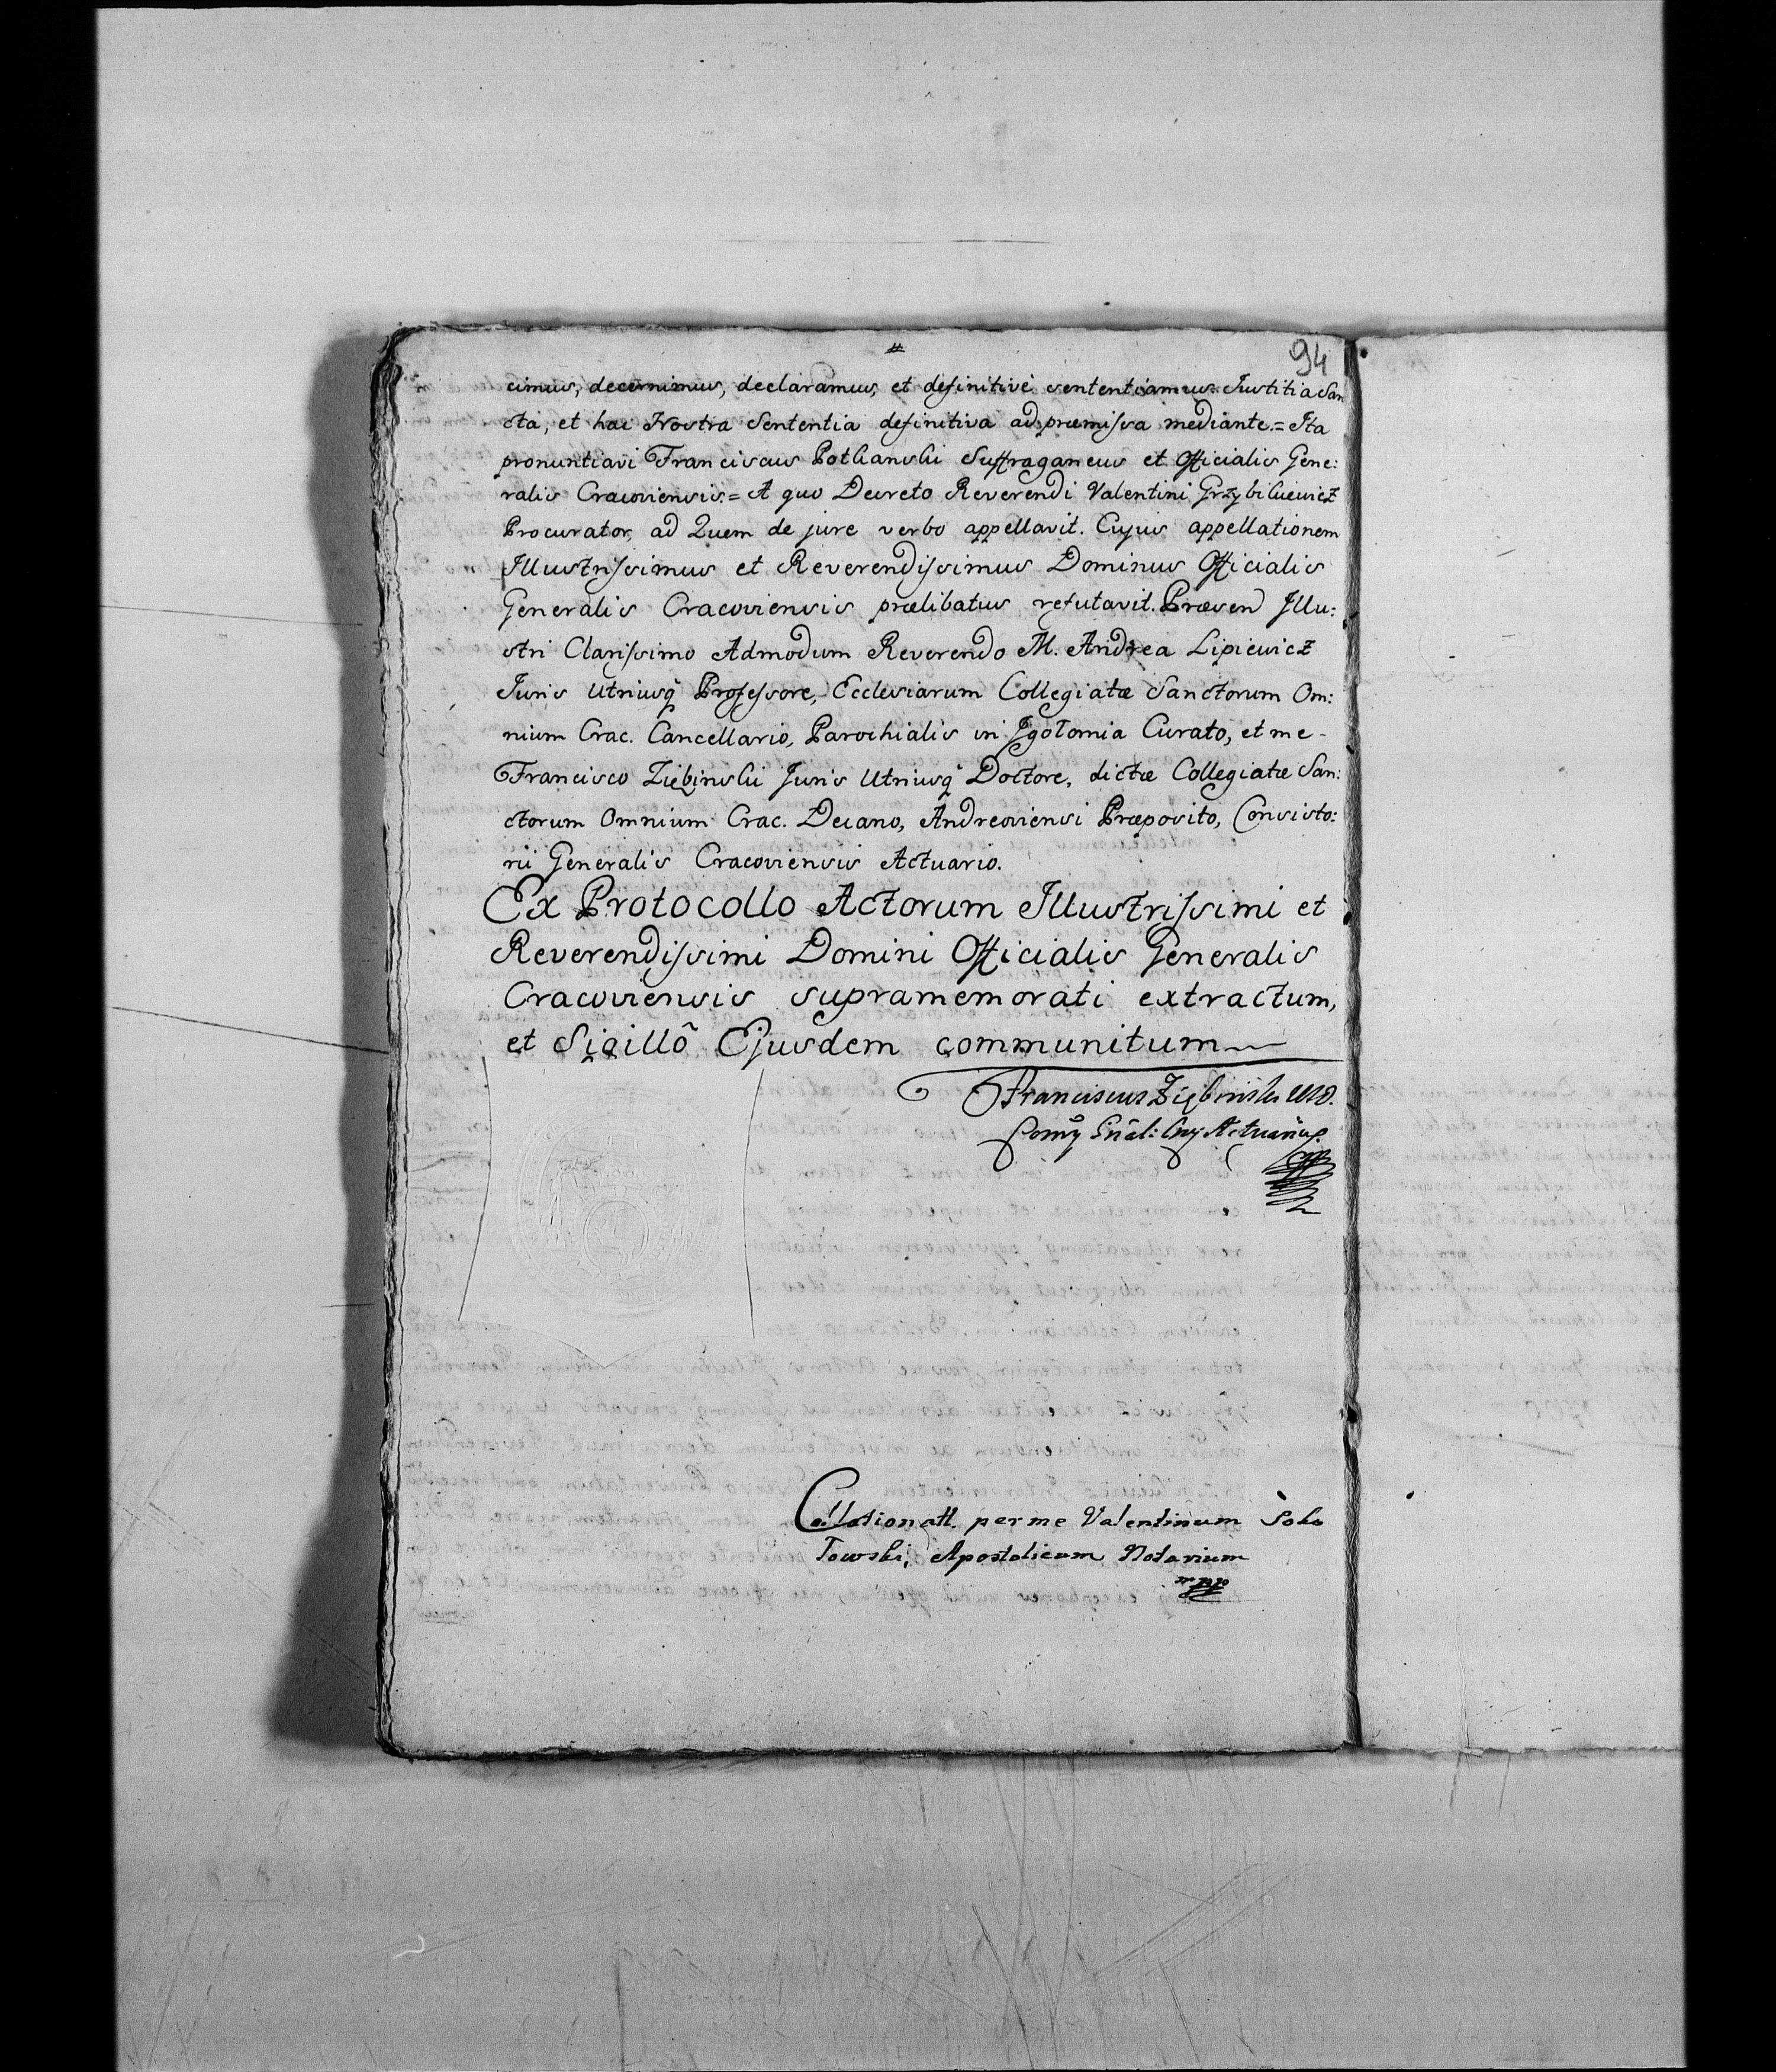 94
cimus, decernimus, declaramus, et definitivè sententiamus Justitia San
cta, et hac Nostra Sententia definitiva ad præmissa mediante.= Ita
pronuntiavi Franciscus Potkanski Suffraganeus et Officialis Gene:
ralis Cracoviensis.= A quo Decreto Reverendi Valentini Grzybikiewicz
Procurator, ad Quem de jure verbo appellavit. Cujus appellationem
Illustrissimus et Reverendissimus Dominus Officialis
Generalis Cracoviensis prælibatus refutavit. Præsen Illu:
stri Clarissimo Admodum Reverendo M. Andrea Lipiewicz
Juris Utriusq̃ Professore, Ecclesiarum Collegiatæ Sanctorum Om:
nium Crac. Cancellario, Parochialis in Jgołomia Curato, et me
Francisco Ziębinski Juris Utriusq̃ Doctore, dictæ Collegiatæ San:
ctorum Omnium Crac. Decano, Andreoviensi Præposito, Consisto:
rii Generalis Cracoviensis Actuario.
Ex Protocollo Actorum Illustrissimi et
Reverendissimi Domini Officialis Generalis
Cracoviensis supramemorati extractum,
et Sigillô Ejusdem communitum
Franciscus Ziębinski
Gñal: Actuarius
Collationatt. per me Valentinum Soko
łowski, Apostolicum Notarium
mppp